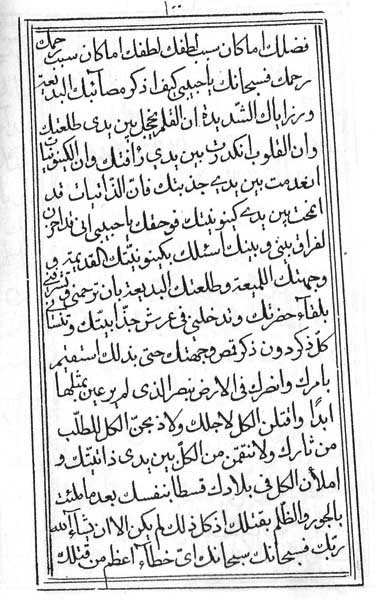 ١٠٠
فضلك اما كان سبب لطفك لطفك اما كان سبب رحمتك
رحمتك فسبحانك يا حبيبي كيف اذكر مصآئبك البديعة
ورزاياك الشديدة ان القلم يخجل بين يدي طلعتك
وان القلوب انكدرت بين يدي رأفتك وان الكينونيات
انعدمت بين يدي جذبتك فان الذاتيات قد
امحت بين يدي كينونيتك فوحقك يا حبيبي اني قد احزن
لفراق بيني وبينك اسئلك بكينونيتك القديمة و
وجهتك اللميعة وطلعتك البديعة بان ترحمني وتشرفني
بلقآء حضرتك وتدخلني في عرش جذابيتك
كل ذكر دون ذكر قمص وجهتك حتى بذلك استقيم
بامرك وانصرك في الارض بنصر الذي لم ير عين بمثلها
ابدا واقتلن الكل لاجلك ولاذبحن الكل للطلب
من ثارك ولانتقمن من الكل بين يدي ذاتيتك و
املأن الكل في بلادك قسطا بنفسك بعد ما ملئت
بالجور والظلم بقتلك اذ كل ذلك لم يكن الا ان يشآء الله
ربك فسبحانك سبحانك اي خطآء اعظم من قتلك